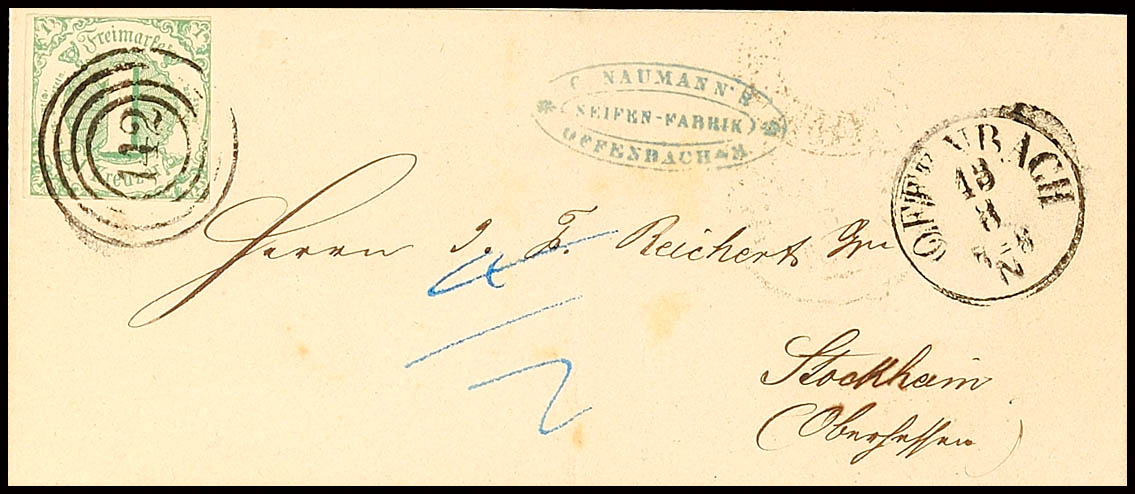 Freimarke
142
C. NAUMANN'S
SEIFEN-FABRIK
OFFENBACH a/M
OFFENBACH
13
8
Herrn J. F. Reichert
Stockheim
(Oberhessen)